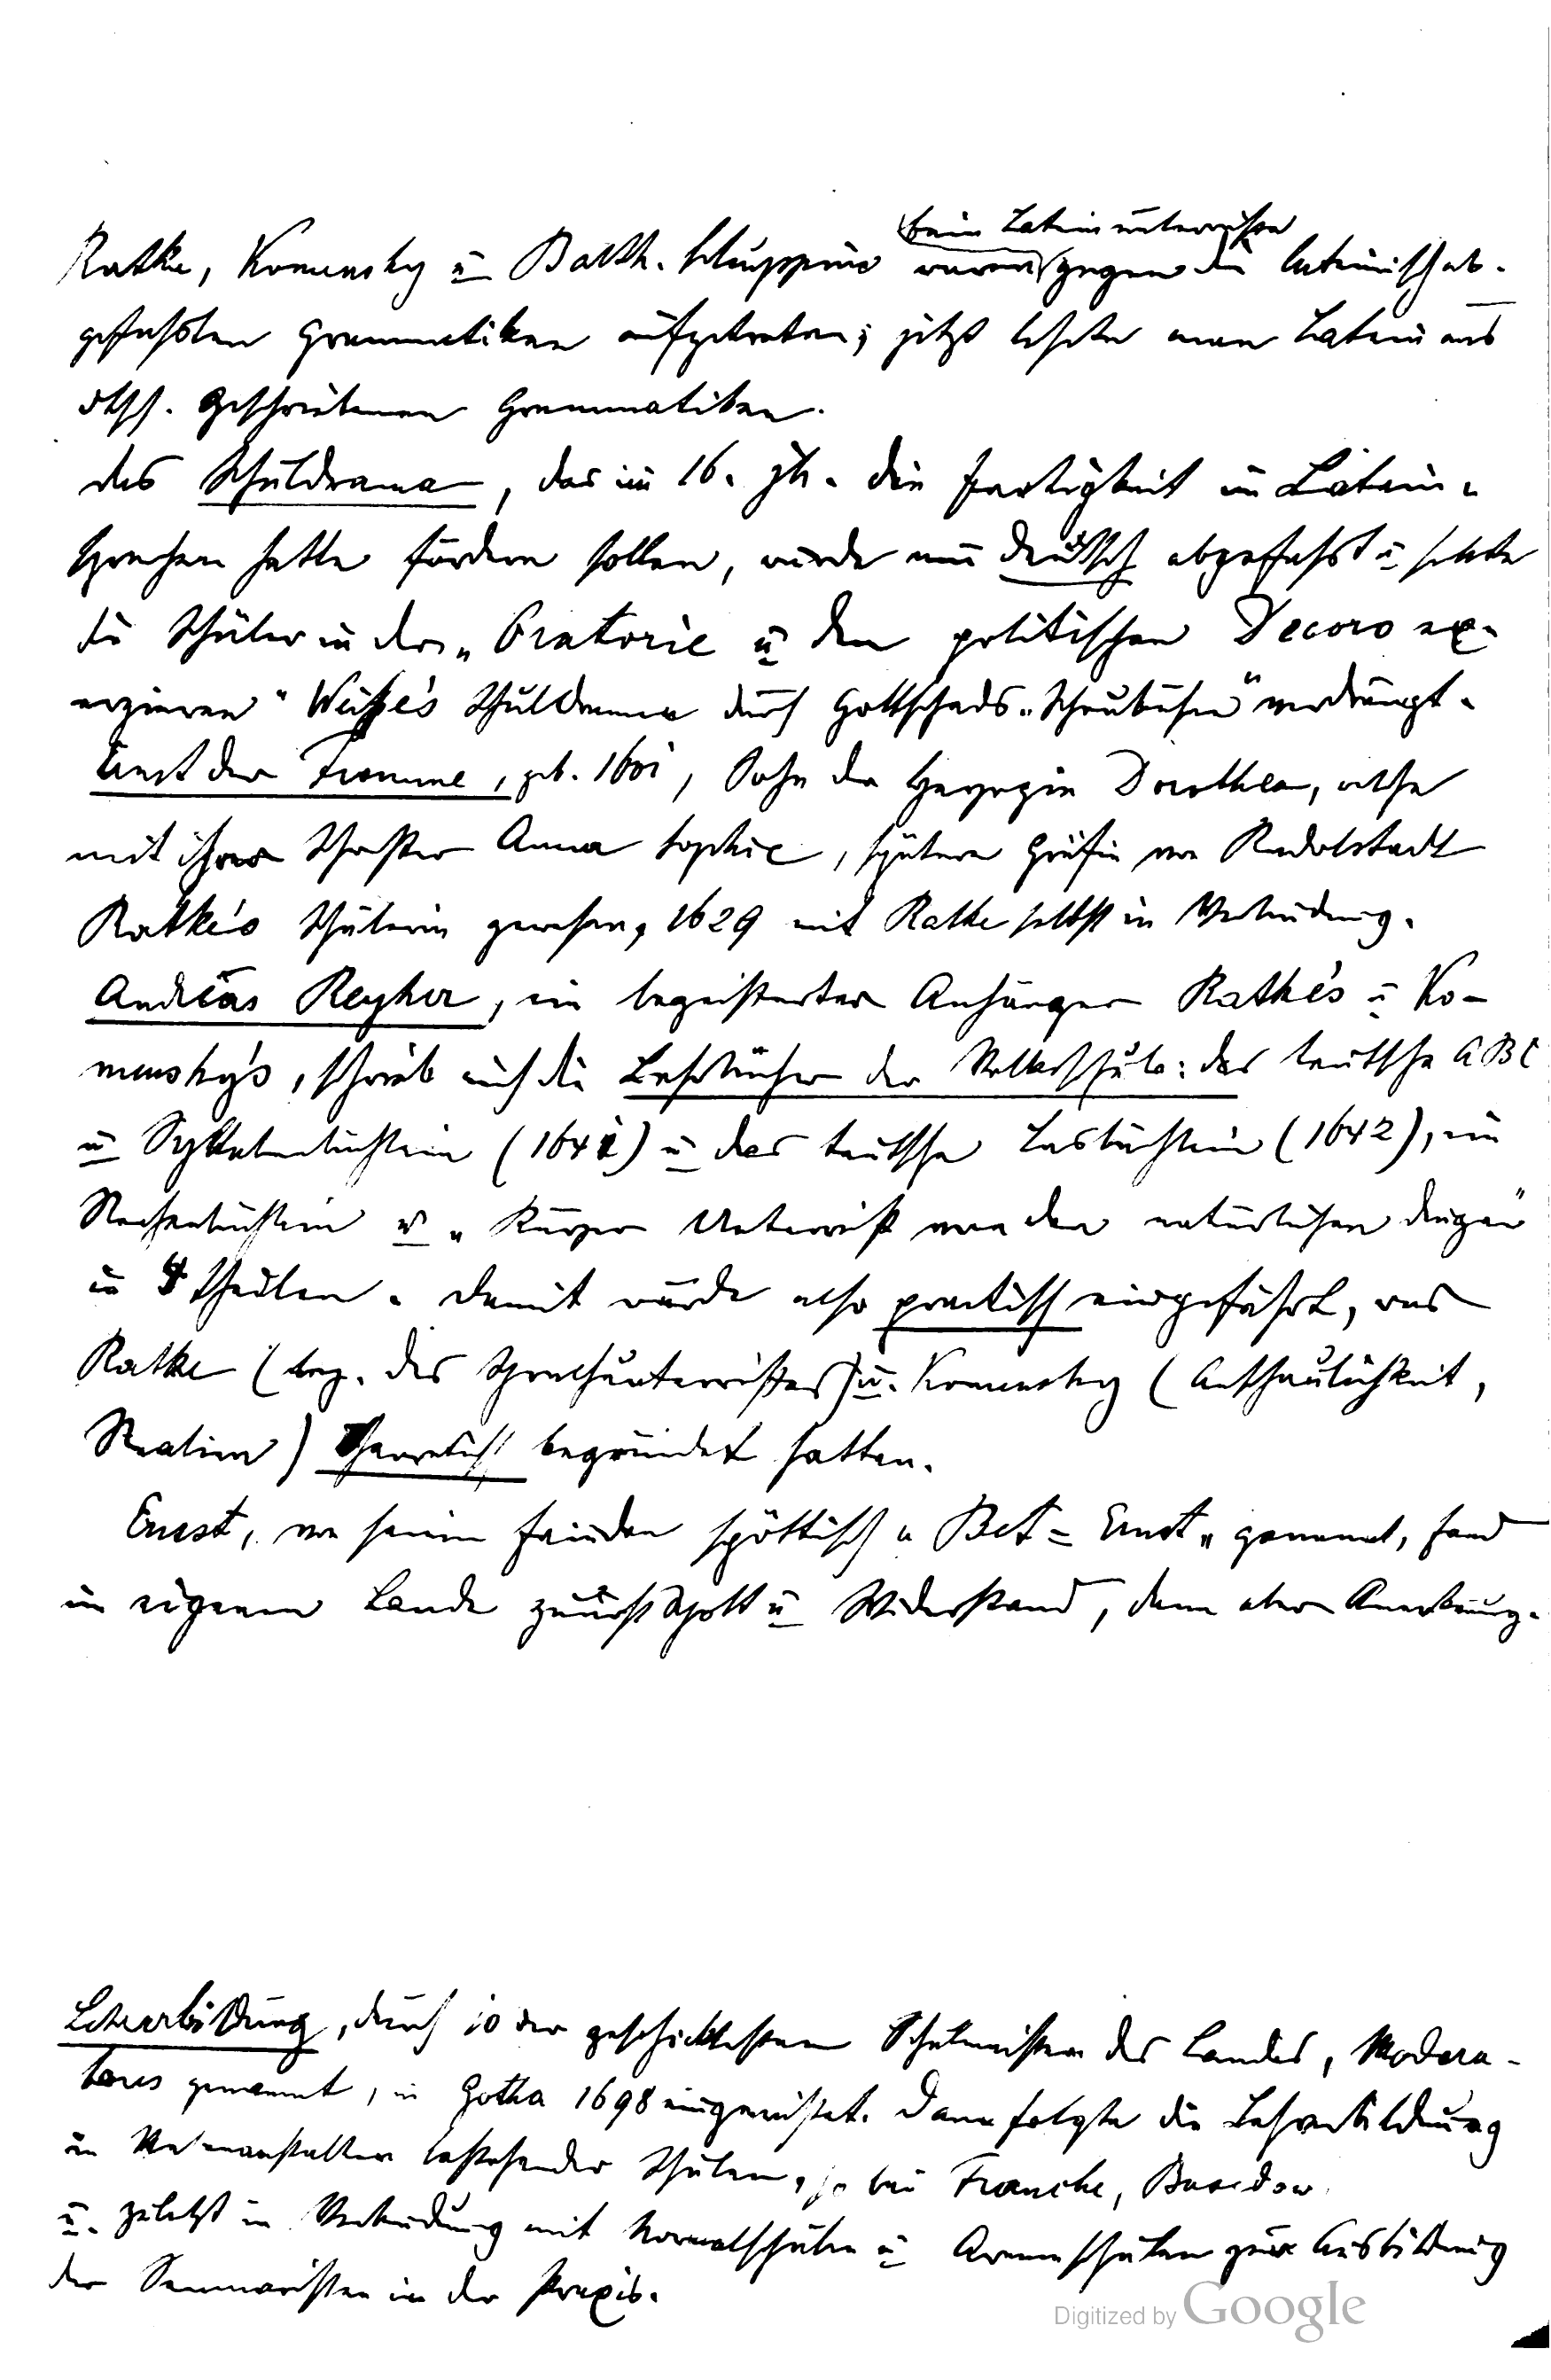 beim Lateinunterrichte
Ratke, Komensky u Balth. Schuppius waren gegen die lateinisch ab-
gefaßten Grammatiken aufgetreten; jetzt lehrte man Latein aus
dtsch. geschriebenen Grammatiken.
das Schuldrama, das im 16. Jh. die Fertigkeit im Latein-
sprechen hatte fördern sollen, wurde nun deutsch abgefaßt u sollte
die Schüler in der „Oratorie u den politischen Decoro ex-
erzieren“ Weise's Schuldrama durch Gottscheds „Schaubühne“ verdrängt.
Ernst der Fromme, geb. 1601, Sohn der Herzogin Dorothea, welche
mit ihrer Schwester Anna Sophie, spätern Gräfin von Rudolstadt
Ratke's Schülerin gewesen, 1629 mit Ratke selbst in Verbindung.
Andreas Reyher, ein begeisterter Anhänger Rathke's u Ko-
mensky's, schrieb auch die Lehrbücher der Volksschule: das teutsche ABC
u Syllabenbüchlein (1641) u das teutsche Lesbüchlein (1642), ein
Rechenbüchlein u „Kurzer Unterricht von den natürlichen Dingen“
in 4 Theilen. Damit wurde also practisch eingeführt, was
Ratke (bez. des Sprachunterrichtes) u. Komensky (Anschaulichkeit,
Realien) theoretisch begründet hatten.
Ernst, von seinen Feinden spöttisch „Bet=Ernst„ genannt, fand
im eigenen Lande zuerst Spott u Widerstand, dann aber Anerkennung.
Lehrerbildung, durch 10 der geschicktesten Schulmeister des Landes, Modera-
tores genannt, in Gotha 1698 eingerichtet. Dann folgte die Lehrerbildung
in Nebenanstalten bestehender Schulen, so bei Francke, Basedow
u. zuletzt in Verbindung mit Normalschulen u Armenschulen zur Ausbildung
der Seminaristen in der Praxis.
Digitized by Google